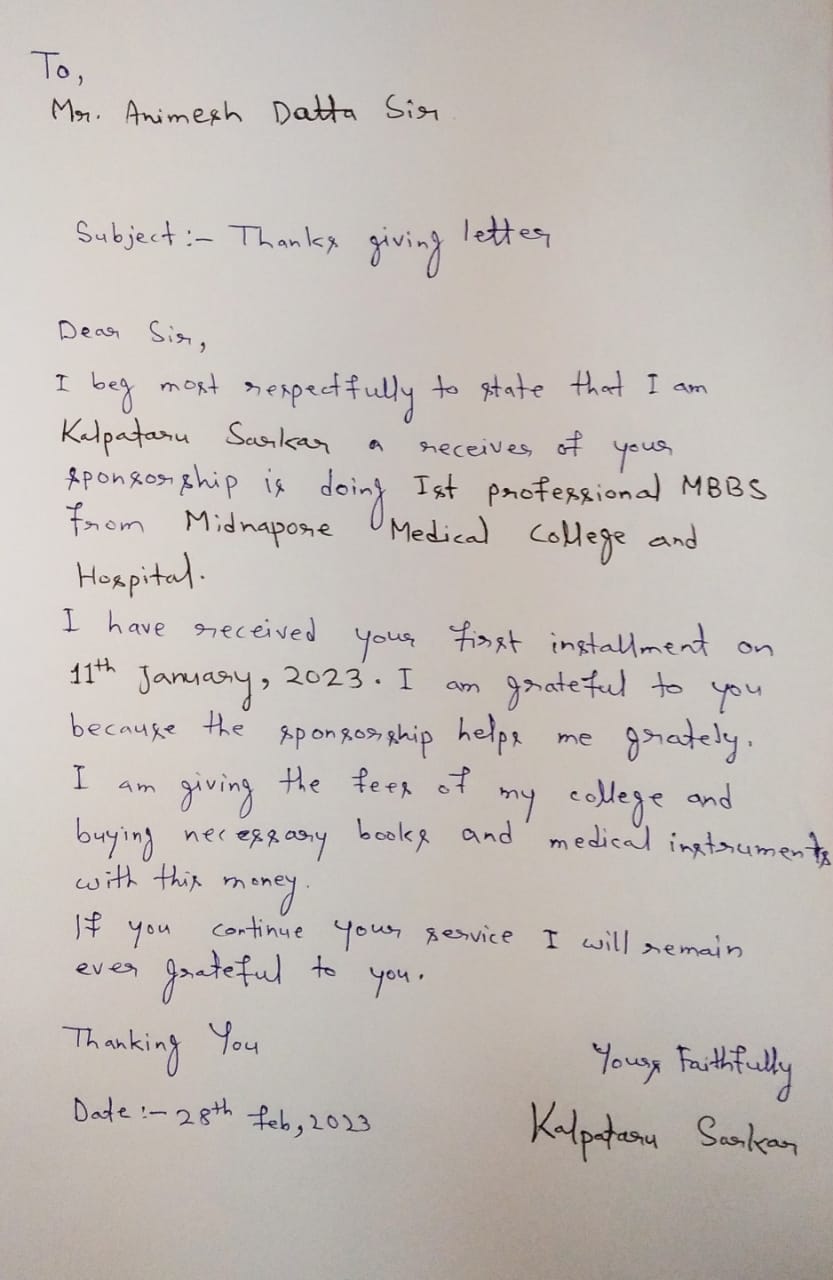 To,
Mr. Animesh Datta Sir
Subject :- Thanks giving letter
Dear Sir,
I beg most respectfully to state that I am
Kalpataru Sarkar a receiver of your
sponsorship is doing Ist professional MBBS
from Midnapore Medical College and
Hospital.
I have received your first installment on
11th January, 2023. I am grateful to you
because the sponsorship helps me grately.
I am giving the fees of my college and
buying necessary books and medical instruments
with this money.
If you continue your service I will remain
ever grateful to you.
Thanking You
Yours Faithfully
Date :- 28th feb, 2023
Kalpataru Sarkar